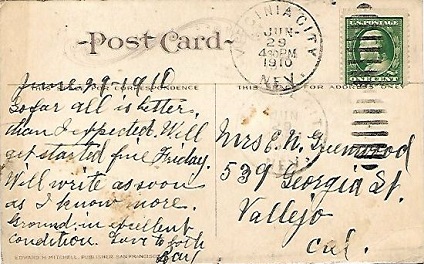 Post Card
VIRGINIA CITY
JUN
29
4 30 PM
1910
NEV.
U.S. POSTAGE
ONE CENT
June 29-1910
THIS FOR ADDRESS ONLY
So far all is better
than I expected. Will
get started fine Friday.
Will write as soon
as I know more.
Ground in excellent
condition. Love to both
Mrs E. N. Greenwood
539 Georgia St.
Vallejo
Cal.
EDWARD H. MITCHELL, PUBLISHER, SAN FRANCISCO